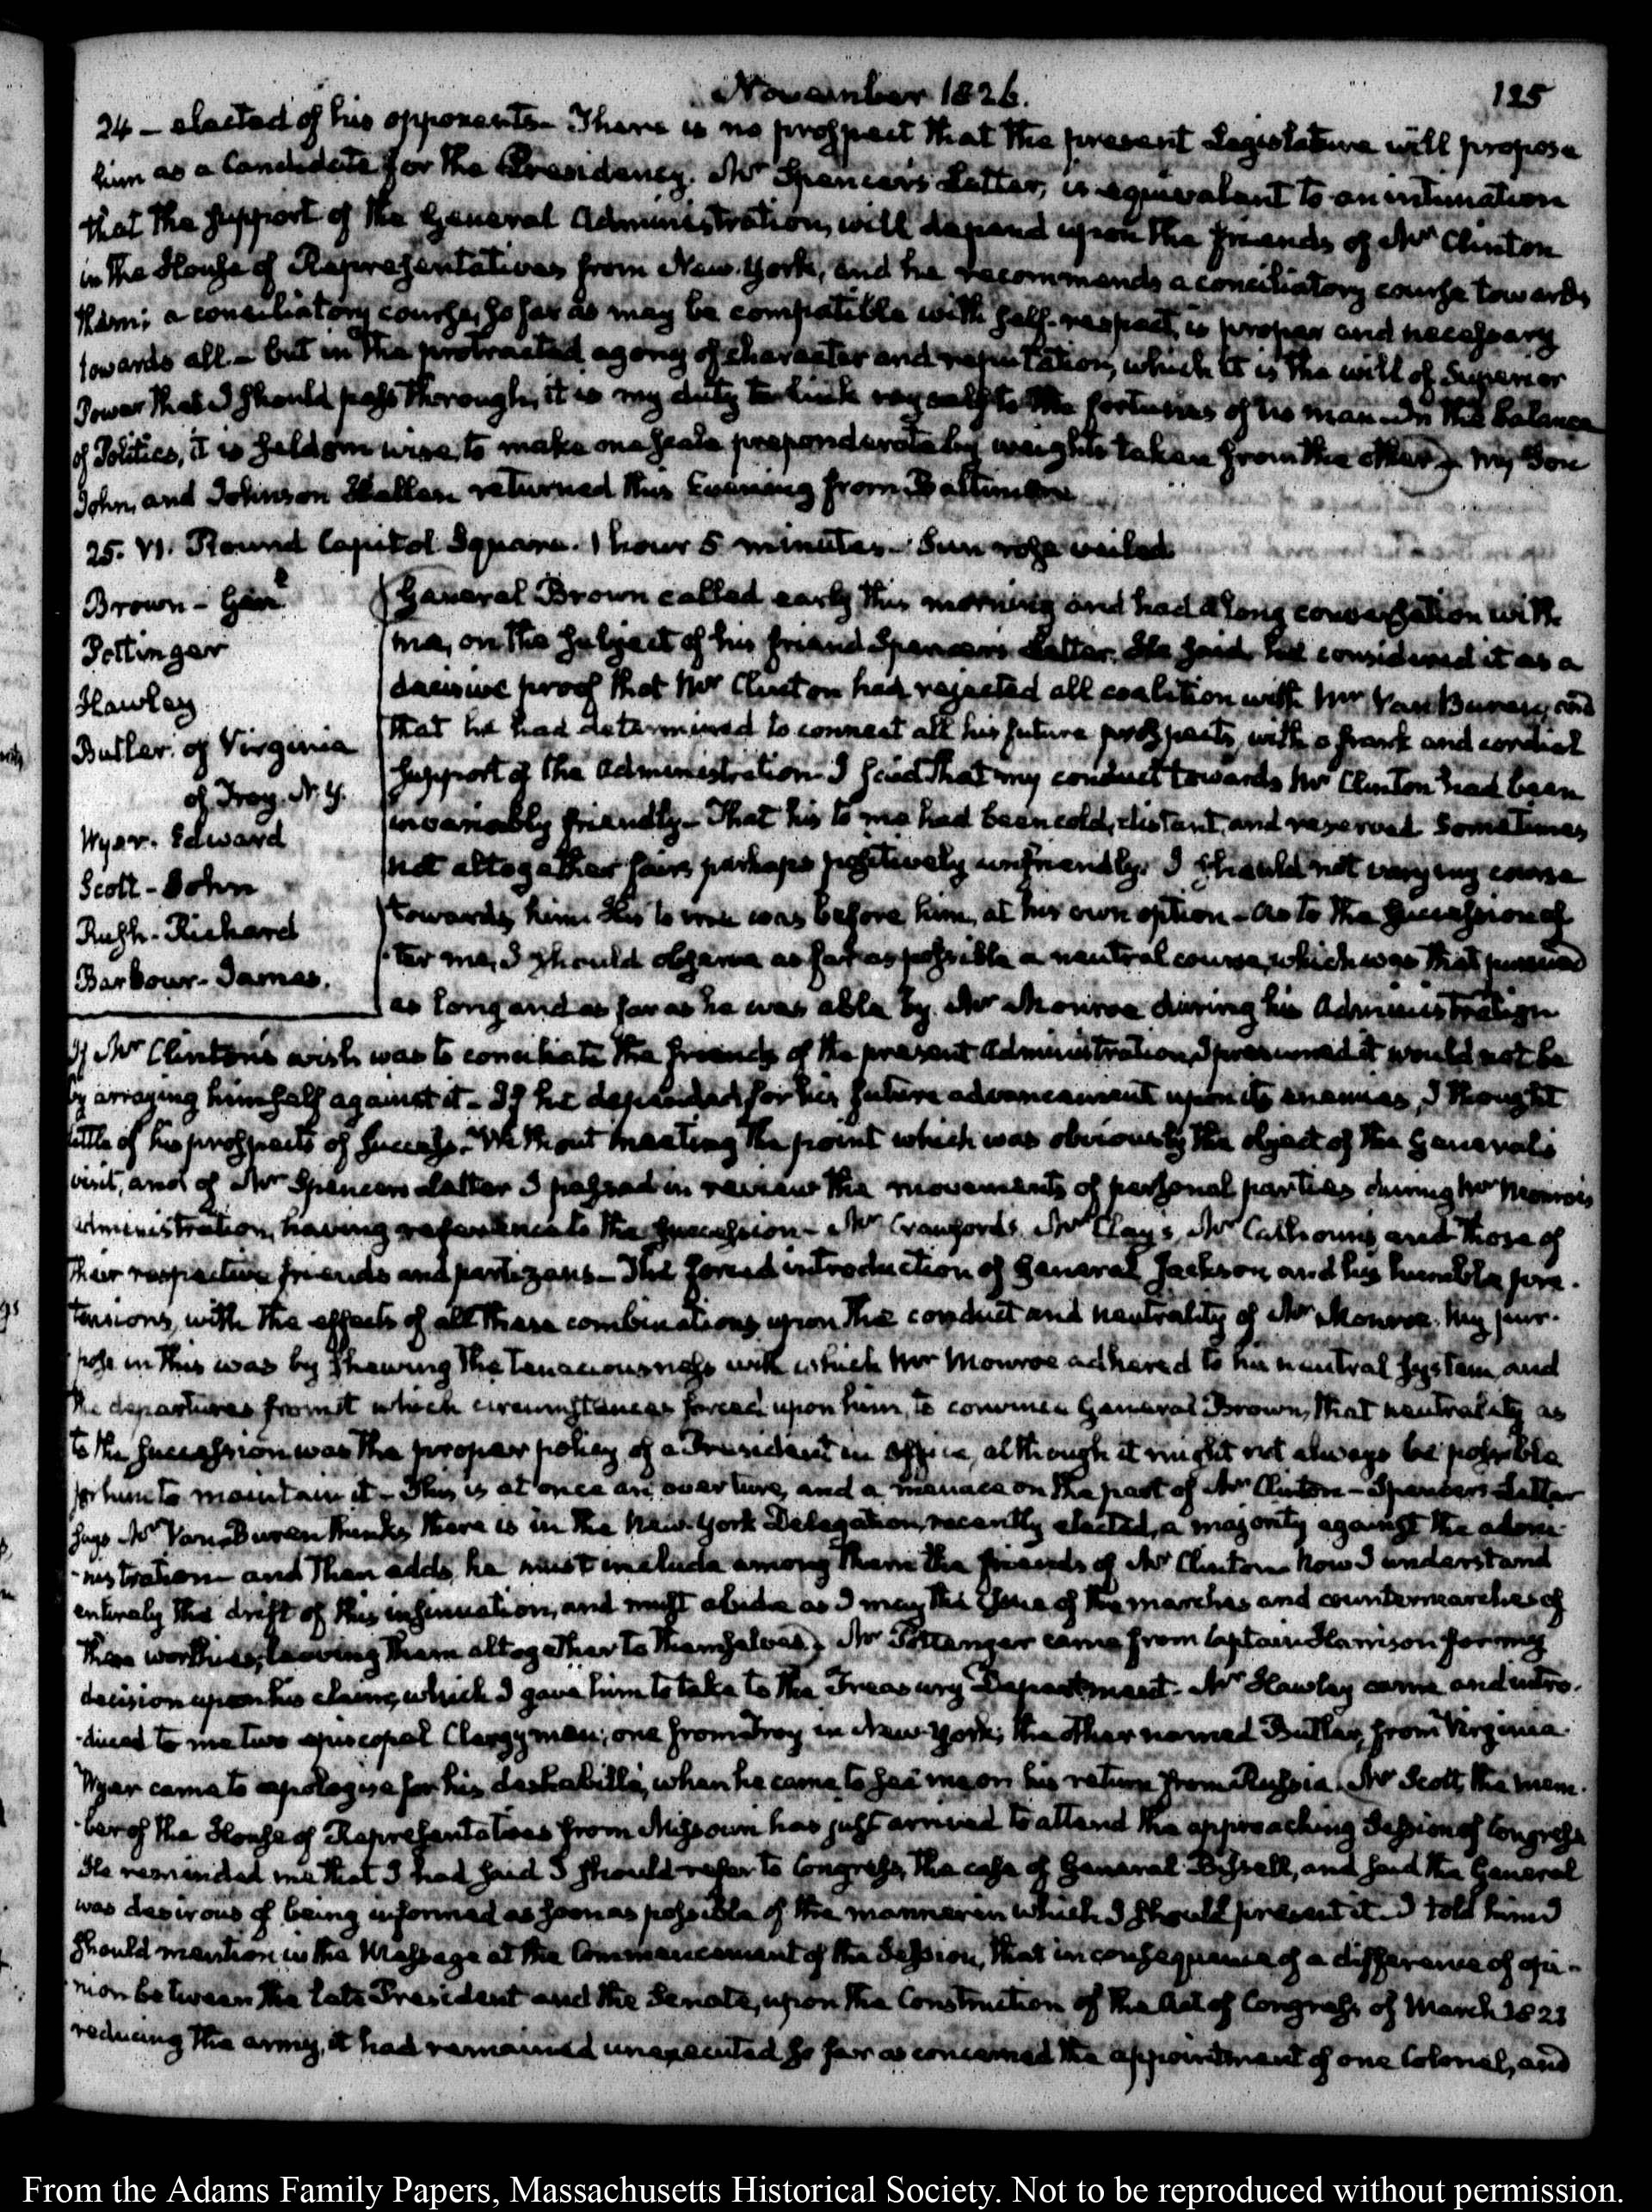 November 1826.
125
24 – elected of his opponents. There is no prospect that the present Legislature will propose
him as a Candidate for the Presidency. Mr Spencer's Letter, is equivalent to an intimation
that the support of the General Administration, will depend upon the friends of Mr Clinton
in the House of Representatives from New-York, and he recommends a conciliatory course towards
them; a conciliatory course, so far as may be compatible with self-respect, is proper and necessary
towards all – but in the protracted agony of character and reputation, which it is the will of Superior
Power that I should pass through, it is my duty to link myself to the fortunes of no man. In the balance
of Politics, it is seldom wise, to make one scale preponderate by weights taken from the other) My Son
John, and Johnson Hellen returned this Evening from Baltimore
25. VI. Round Capitol Square. 1 hour 5 minutes. Sun rose veiled
Brown – Genl
Pottinger
Hawley
Butler. of Virginia
of Troy. N.Y.
Wyer. Edward
Scott – John
Rush – Richard
Barbour – James.
(General Brown called early this morning and had a long conversation with
me, on the subject of his friend Spencer's Letter. He said he considered it as a
decisive proof that Mr Clinton had rejected all coalition with Mr Van Buren, and
that he had determined to connect all his future prospects, with a frank and cordial
support of the Administration. I said that my conduct towards Mr Clinton had been
invariably friendly – That his to me had been cold, distant, and reserved. Sometimes
not altogether fair, perhaps positively unfriendly. I should not vary my course
towards him. His to me was before him, at his own option – As to the succession af-
ter me, I should observe as far as possible a neutral course, which was that pursued
as long and as far as he was able by Mr Monroe during his Administration
If Mr Clinton's wish was to conciliate the friends of the present Administration, I presumed it would not be
by arraying himself against it – If he depended for his future advancement upon its enemies, I thought
little of his prospects of success. Without meeting the point which was obviously the object of the General's
visit, and of Mr Spencer's Letter I passed in review the movements of personal parties during Mr Monroe's
Administration, having reference to the succession – Mr Crawford's, Mr Clay's, Mr Calhoun's and those of
their respective friends and partizans – The forced introduction of General Jackson and his humble pre-
tensions, with the effects of all these combinations upon the conduct and neutrality of Mr Monroe. My pur-
pose in this was by shewing the tenaciousness with which Mr Monroe adhered to his neutral system, and
the departures from it which circumstances forced upon him, to convince General Brown, that neutrality as
to the succession was the proper policy of a President in office, although it might not always be possible
for him to maintain it – This is at once an overture, and a menace on the part of Mr Clinton – Spencer's Letter
says Mr Van Buren thinks there is in the New-York Delegation, recently elected, a majority against the admi-
nistration – and then adds, he must include among them the friends of Mr Clinton. Now I understand
entirely the drift of this insinuation, and must abide as I may the issue of the marches and countermarches of
these worthies; leaving them altogether to themselves) Mr Pottenger came from Captain Harrison for my
decision upon his claim, which I gave him to take to the Treasury Department. Mr Hawley came and intro-
duced to me two episcopal Clergymen; one from Troy in New-York; the other named Butler, from Virginia.
Wyer came to apologise for his deshabille, when he came to see me on his return from Russia. (Mr Scott, the mem-
ber of the House of Representatives from Missouri has just arrived to attend the approaching Session of Congress
He reminded me that I had said I should refer to Congress, the case of General Bissell, and said the General
was desirous of being informed as soon as possible of the manner in which I should present it. I told him I
should mention in the Message at the Commencement of the Session, that in consequence of a difference of opi-
nion between the late President and the Senate, upon the Construction of the Act of Congress of March 1821
reducing the army, it had remained unexecuted so far as concerned the appointment of one Colonel, and
From the Adams Family Papers, Massachusetts Historical Society. Not to be reproduced without permission.